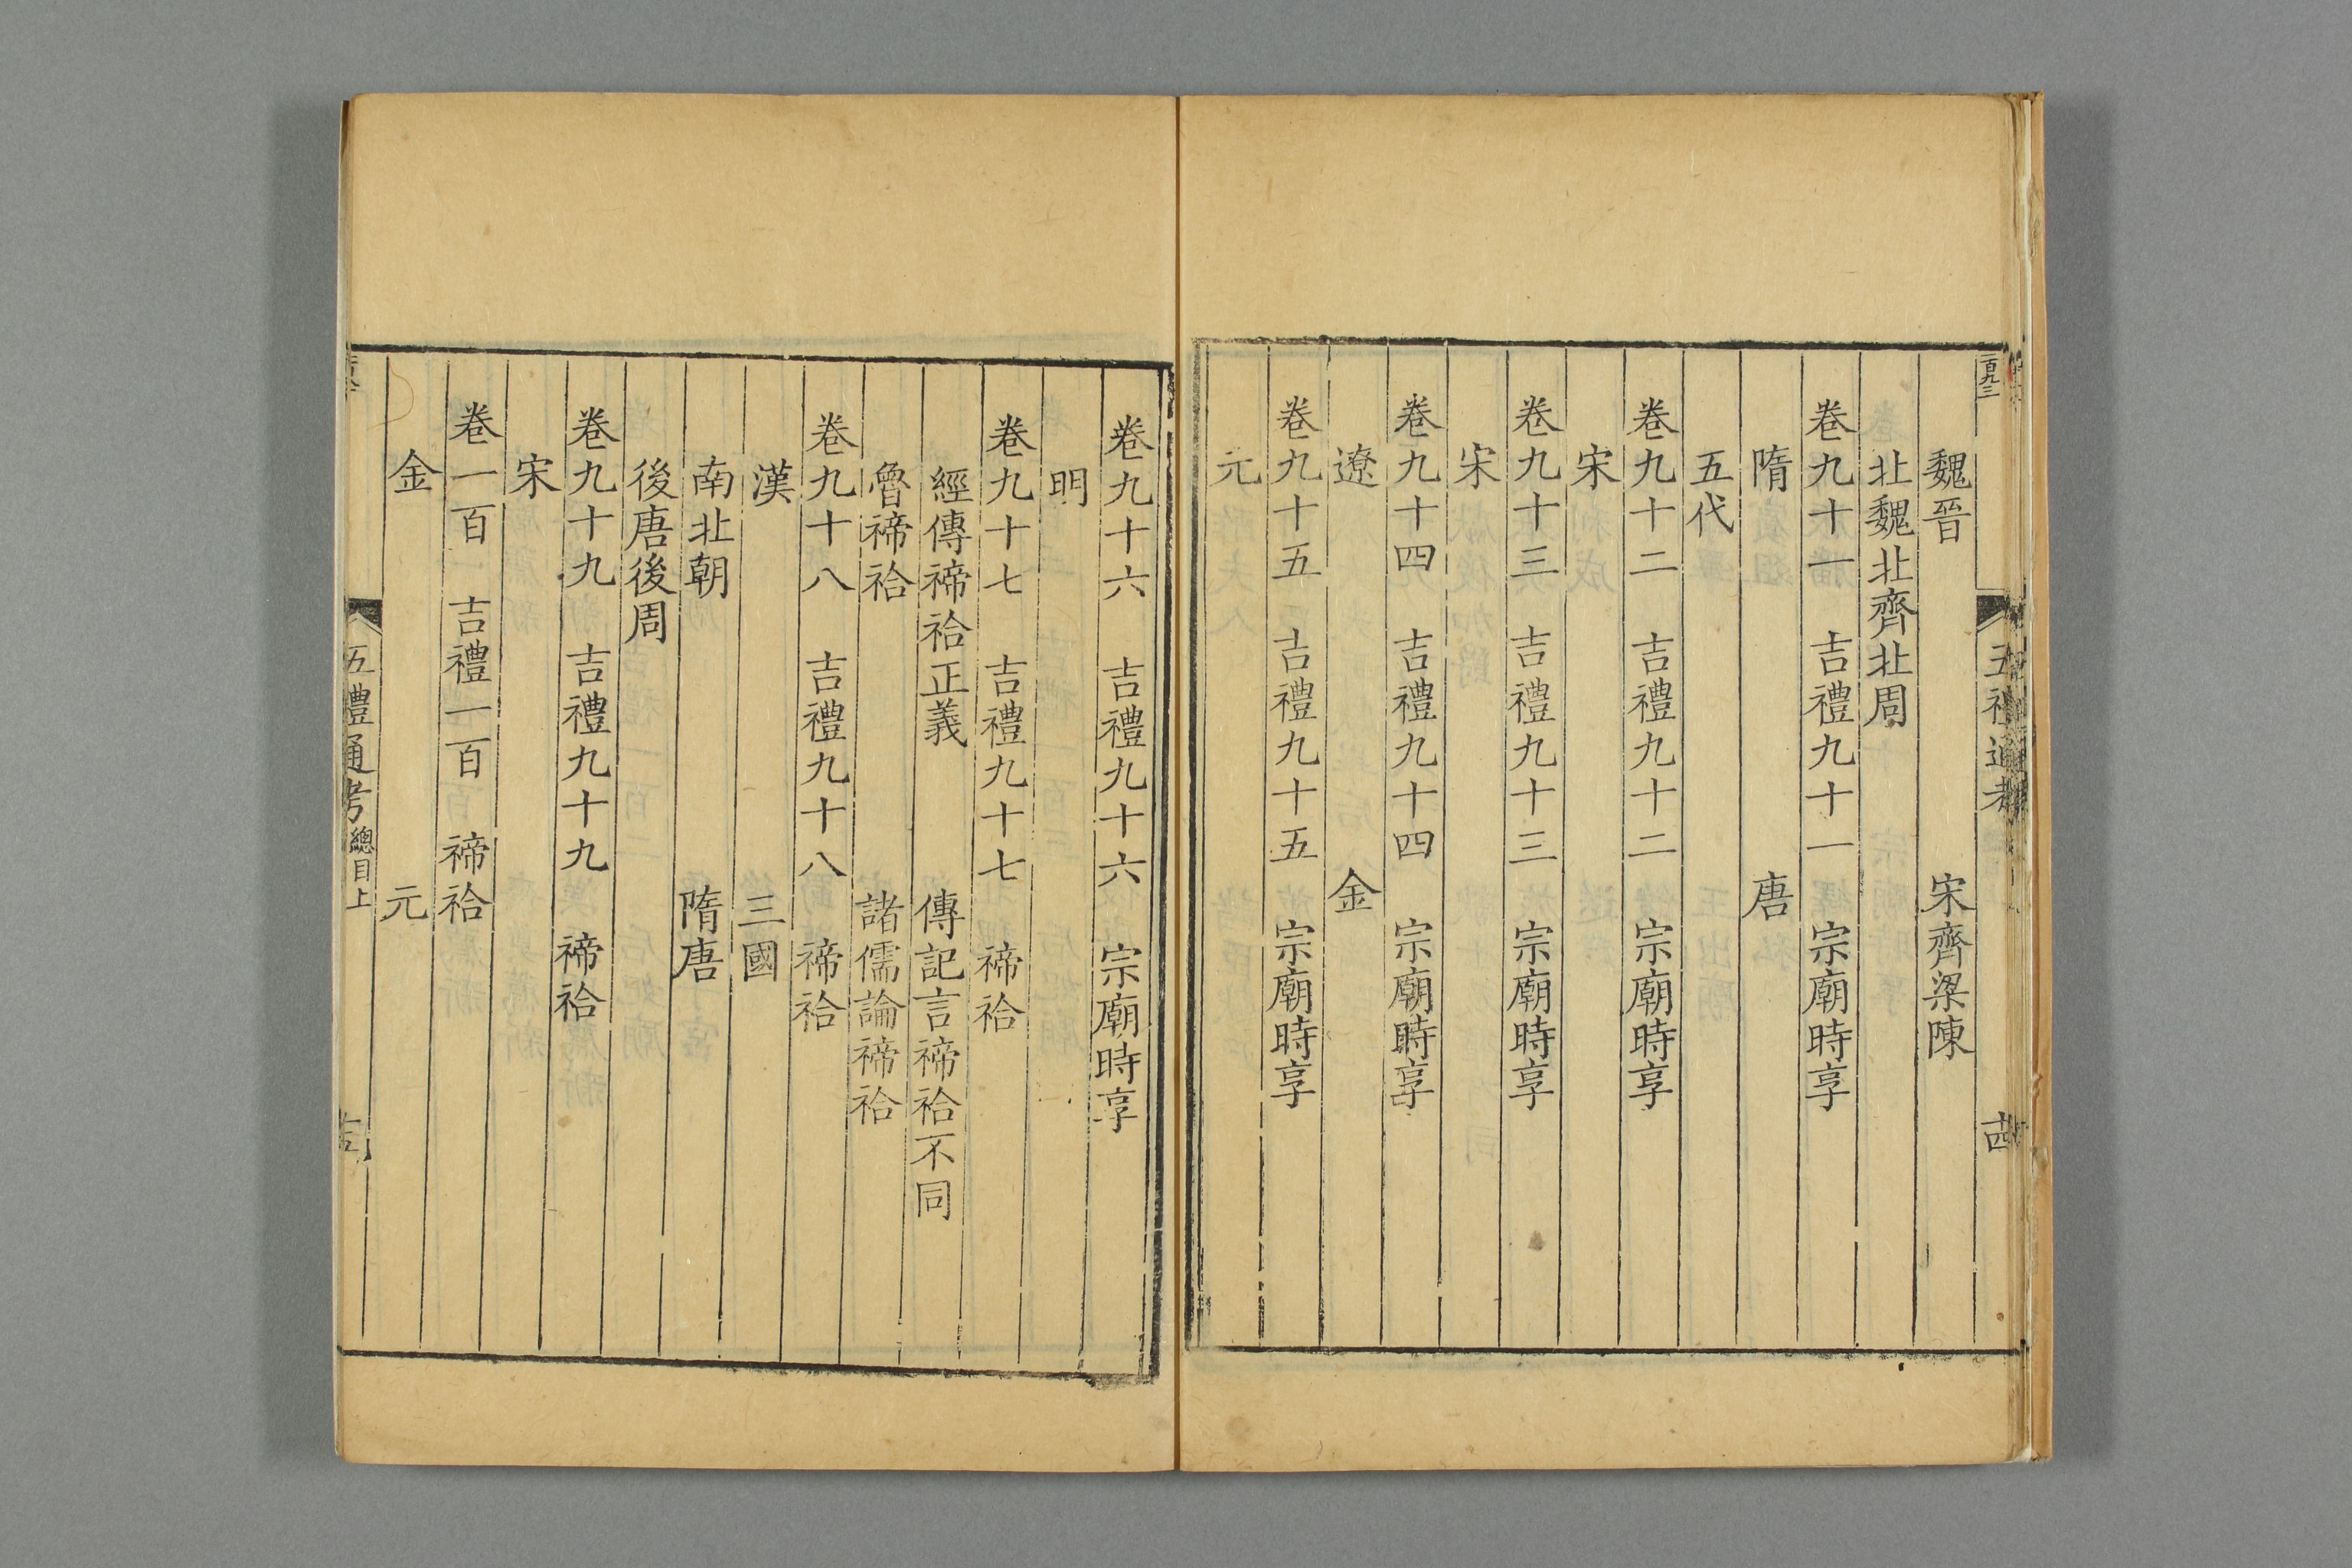 五禮通考
魏晉　宋齊梁陳
北魏北齊北周
卷九十一　吉禮九十一　宗廟時享
隋　唐
五代
卷九十二　吉禮九十二　宗廟時享
宋
卷九十三　吉禮九十三　宗廟時享
宋
卷九十四　吉禮九十四　宗廟時享
遼　金
卷九十五　吉禮九十五　宗廟時享
元
卷九十六　吉禮九十六　宗廟時享
明
卷九十七　吉禮九十七　禘祫
經傳禘祫正義　傳記言禘祫不同
魯禘祫　諸儒論禘祫
卷九十八　吉禮九十八　禘祫
漢　三國
南北朝　隋唐
後唐後周
卷九十九　吉禮九十九　禘祫
宋
卷一百　吉禮一百　禘祫
金　元
五禮通考總目上